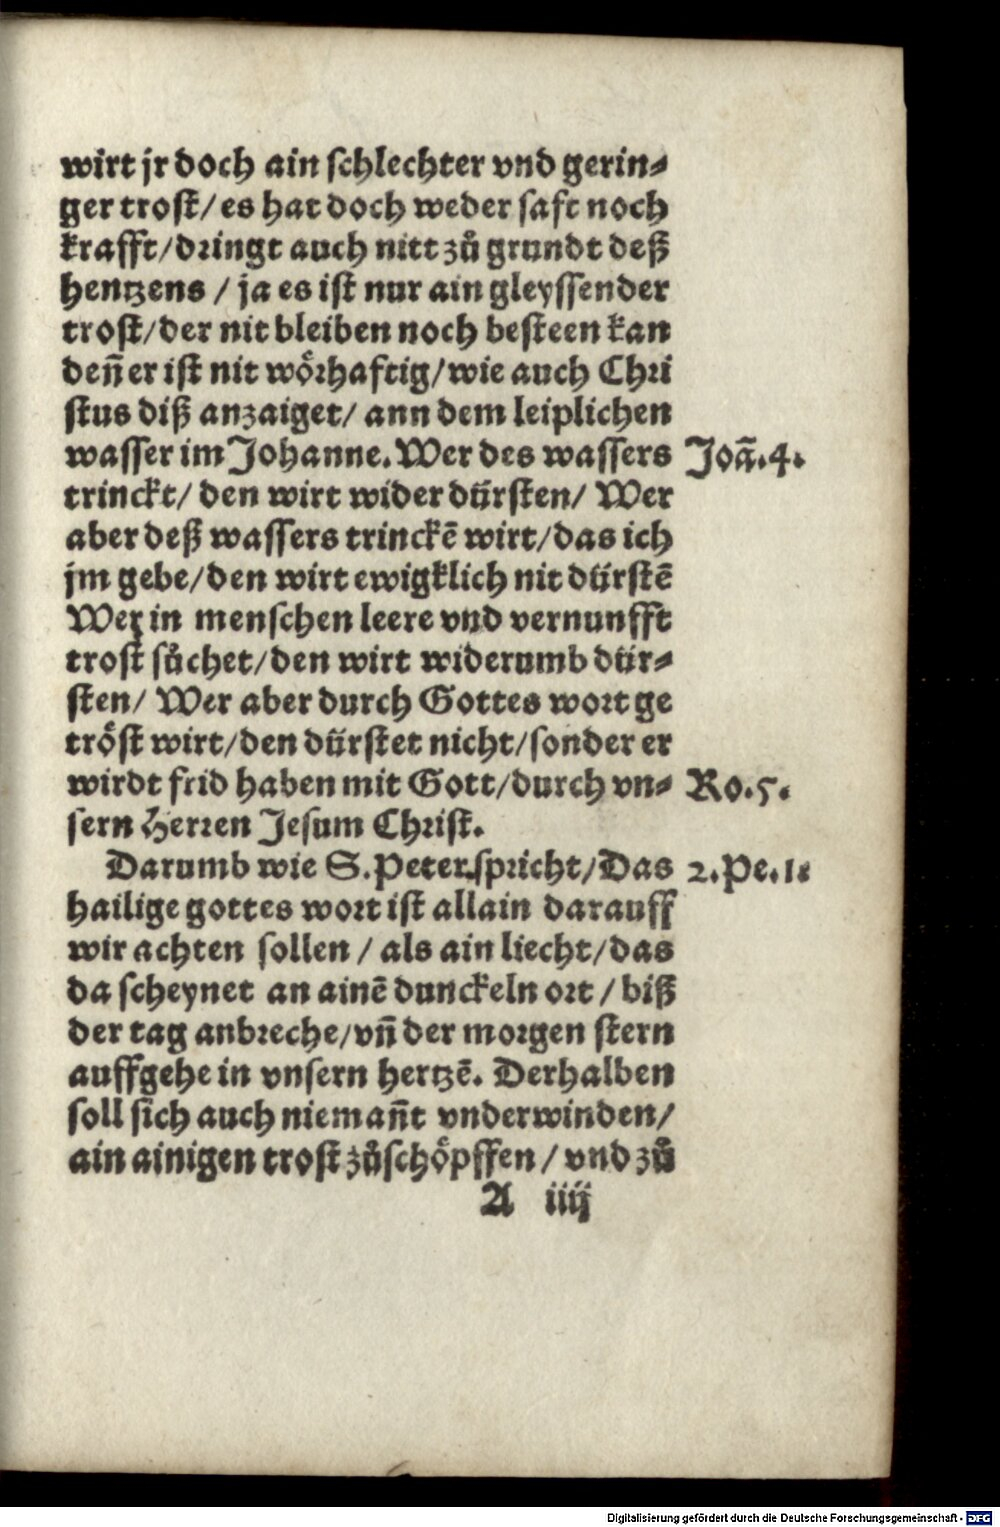 wirt jr doch ain schlechter vnd gerin⸗
ger trost/ es hat doch weder saft noch
krafft/ dringt auch nitt zů grundt deß
hentzens / ja es ist nur ain gleyssender
trost/ der nit bleiben noch besteen kan
deñ er ist nit wörhaftig/ wie auch Chri
stus diß anzaiget/ ann dem leiplichen
wasser im Johanne. Wer des wassers Joã.4.
trinckt/ den wirt wider dürsten/ Wer
aber deß wassers trinckẽ wirt/ das ich
jm gebe/ den wirt ewigklich nit dürstẽ
Wer in menschen leere vnd vernunfft
trost sůchet/ den wirt widerumb dür⸗
sten/ Wer aber durch Gottes wort ge
tröst wirt/ den dürstet nicht/ sonder er
wirdt frid haben mit Gott/ durch vn⸗ Ro.5.
sern Herren Jesum Christ.
Darumb wie S. Peter spricht/ Das 2.Pe.1.
hailige gottes wort ist allain darauff
wir achten sollen / als ain liecht/ das
da scheynet an ainẽ dunckeln ort / biß
der tag anbreche/ vñ der morgen stern
auffgehe in vnsern hertzẽ. Derhalben
soll sich auch niemañt vnderwinden/
ain ainigen trost zůschöpffen / vnd zů
A iiij
Digitalisierung gefördert durch die Deutsche Forschungsgemeinschaft - DFG